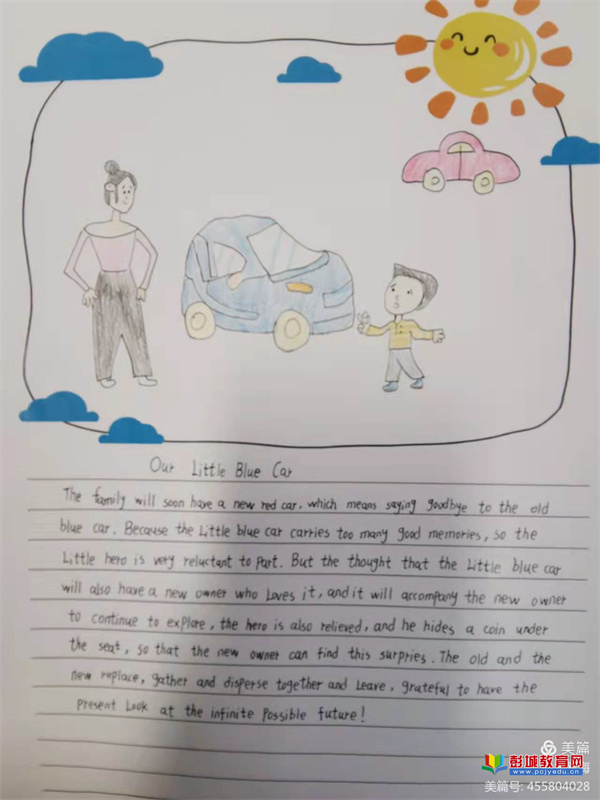 Our Little Blue Car
The family will soon have a new red car, which means saying goodbye to the old
blue car. Because the Little blue car carries too many good memories, so the
Little hero is very reluctant to part. But the thought that the Little blue car
will also have a new owner who loves it, and it will accompany the new owner
to continue to explore, the hero is also relieved, and he hides a coin under
the seat, so that the new owner can find this surpries. The old and the
new replace, gather and disperse together and Leave, grateful to have the
present Look at the infinite possible future!
美篇
彭城教育网
www.pcjyedu.cn
美篇号: 455804028